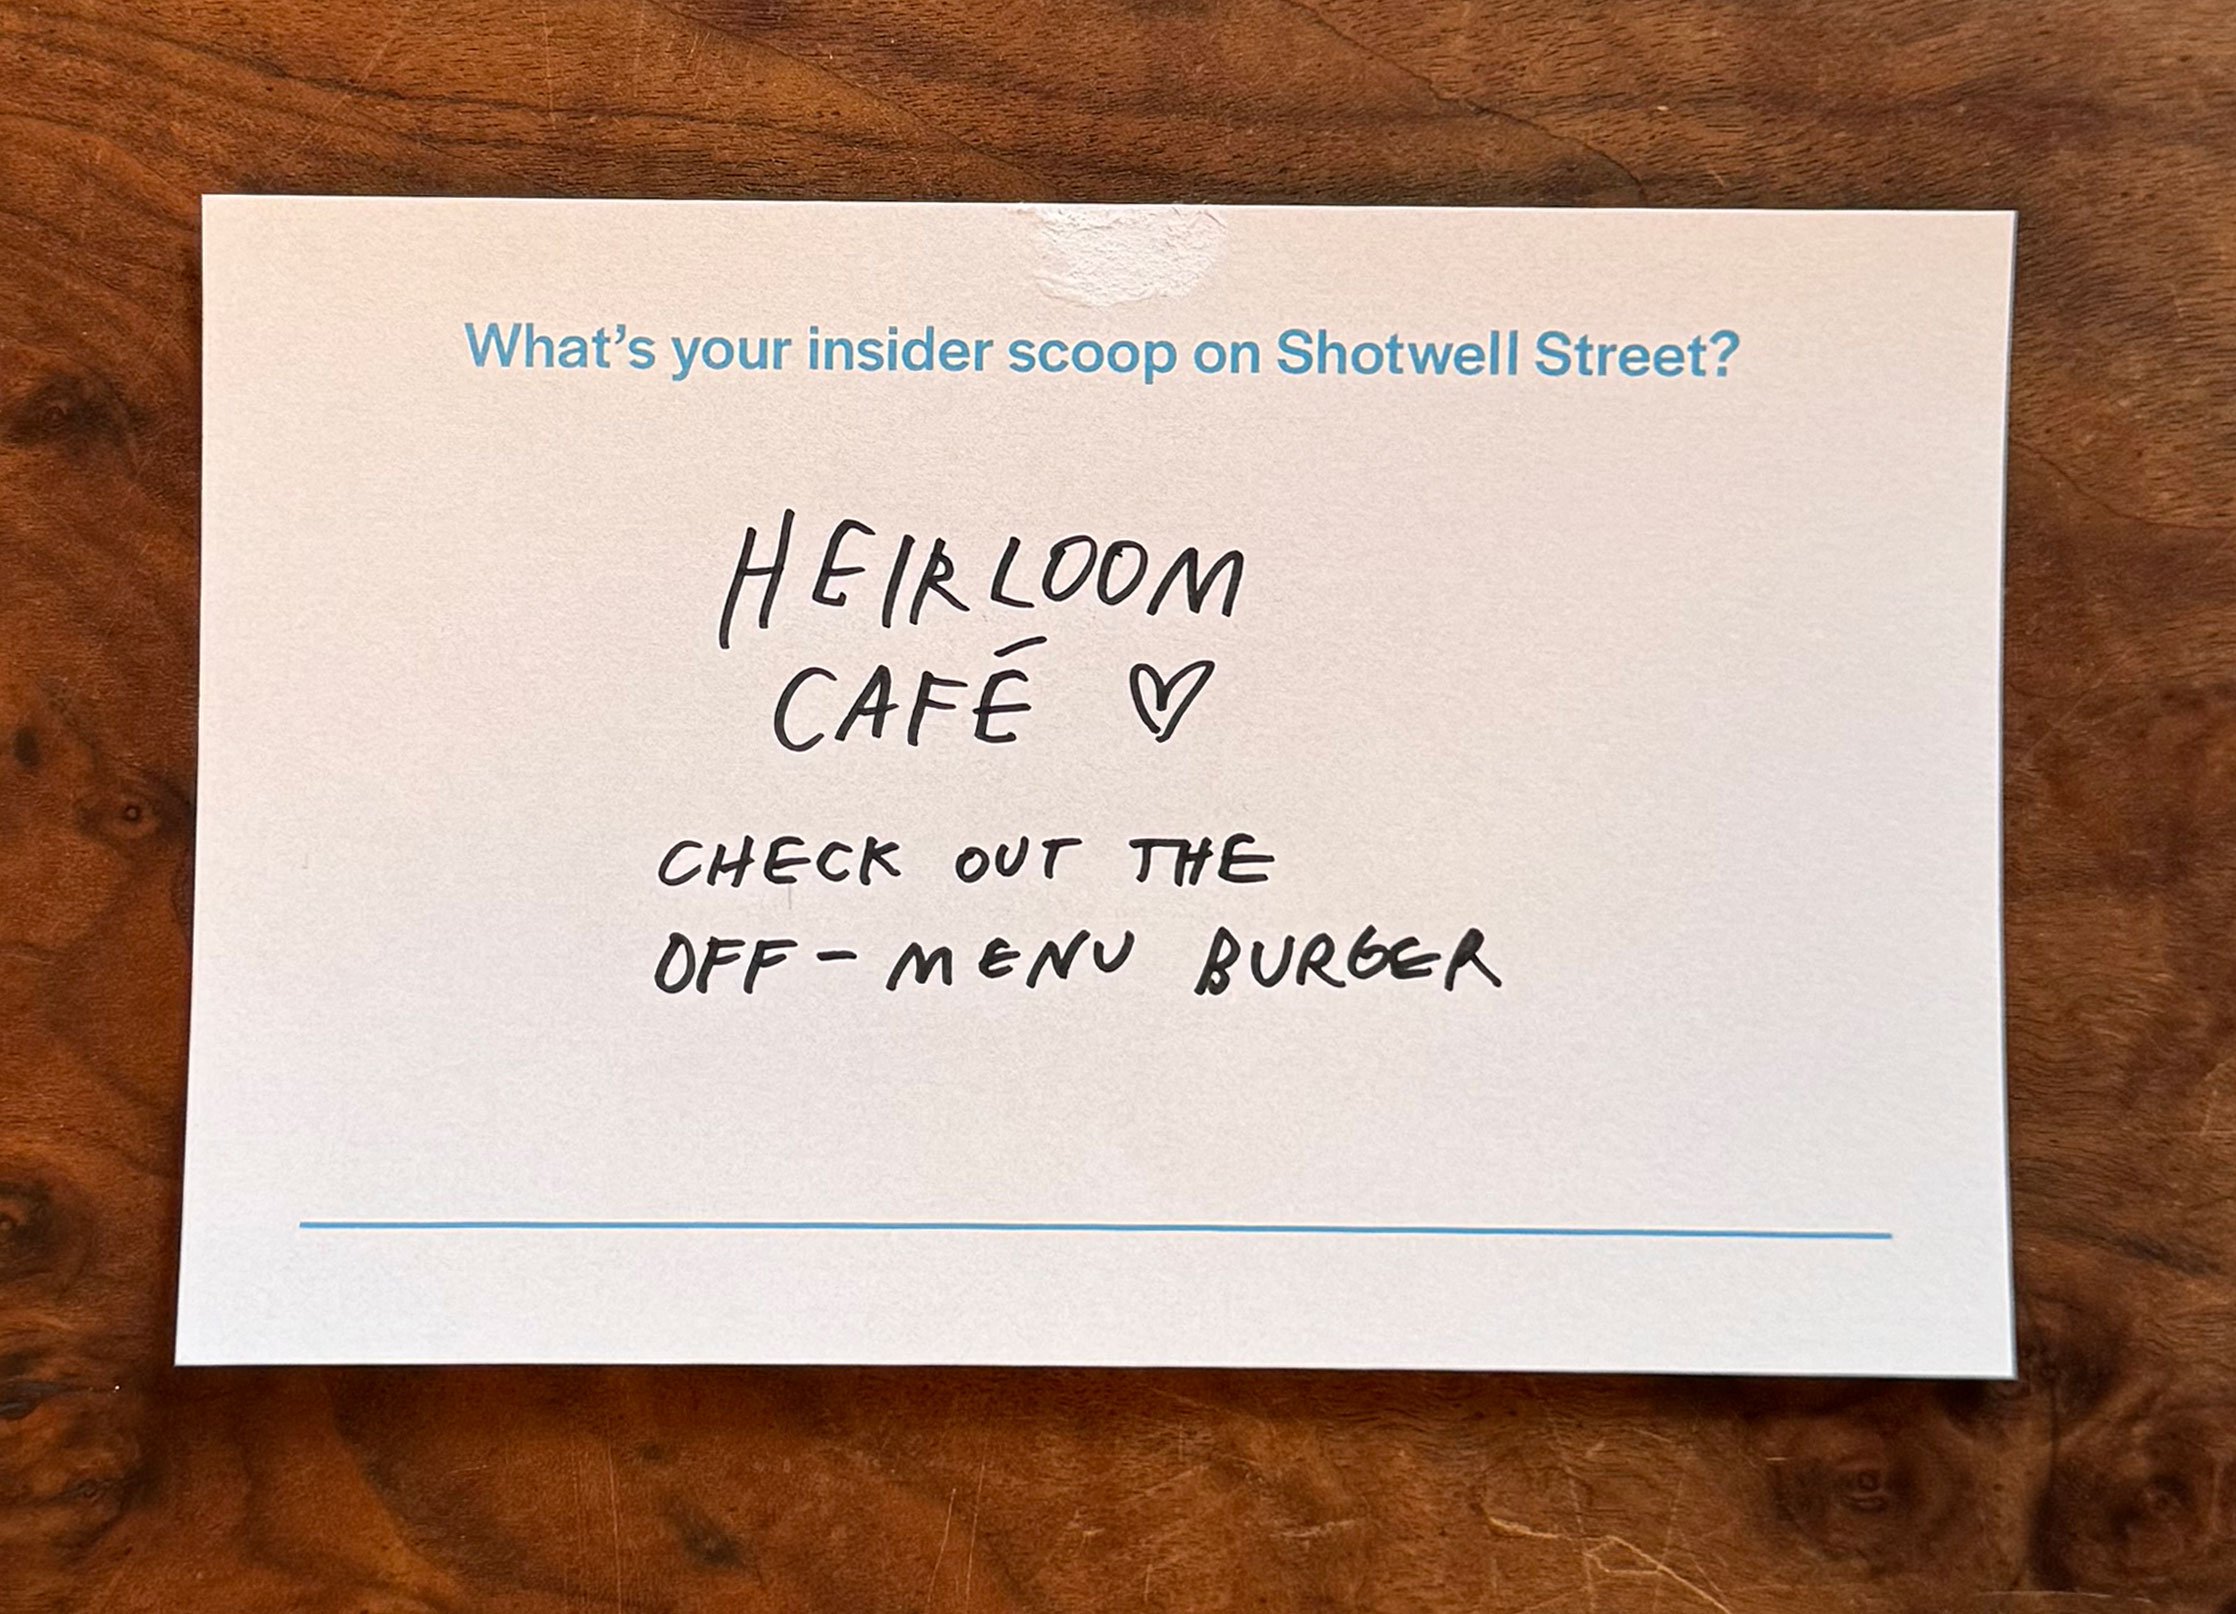 What's your insider scoop on Shotwell Street?
HEIRLOOM
CAFÉ ♡
CHECK OUT THE
OFF-MENU BURGER